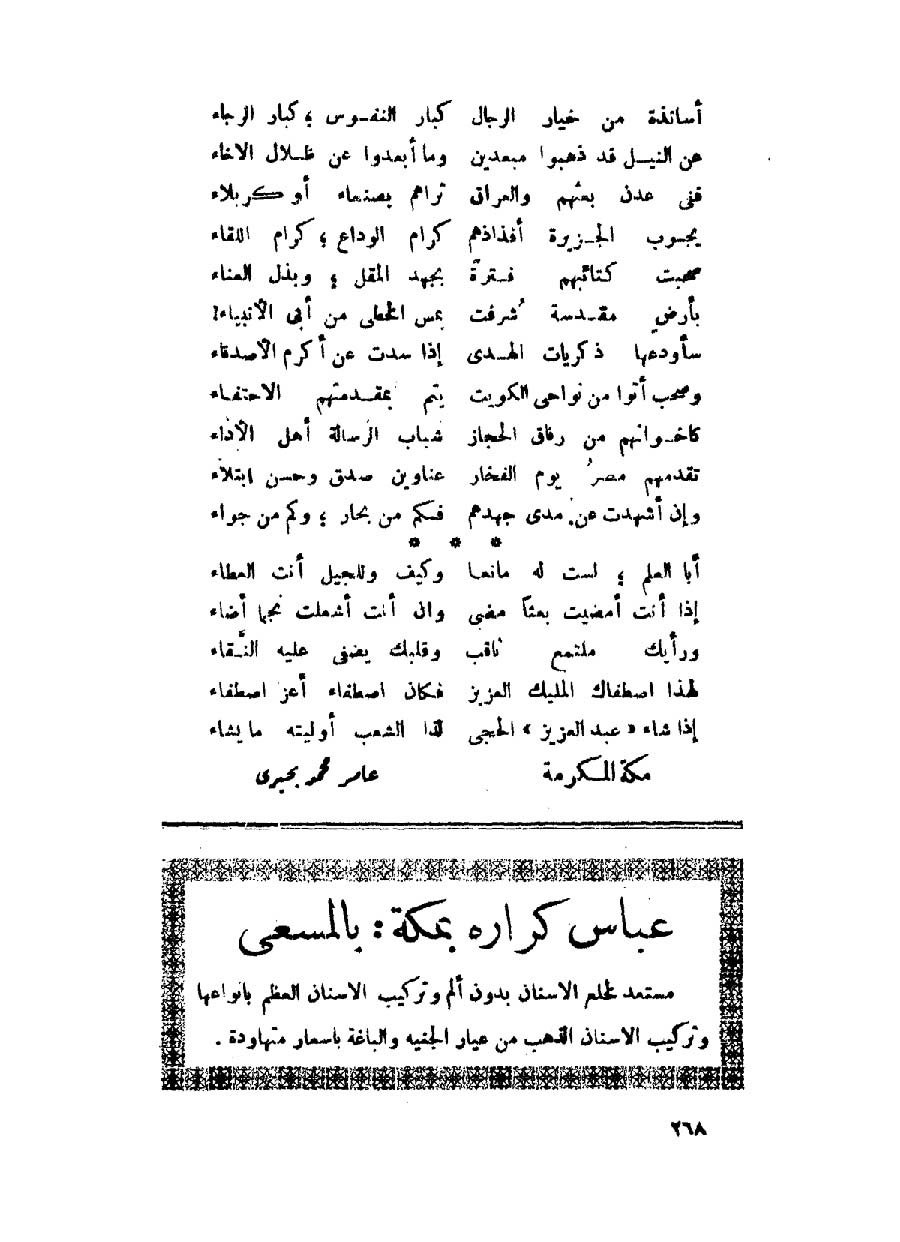 أساتذة من خيار الرجال كبار النفوس ، كبار الرجاء
عن النيل قد ذهبوا مبعدين وما أبعدوا عن ظلال الاخاء
ففى عدن بعثهم والعراق تراهم بصنعاء أو كربلاء
يجوب الجزيرة أفذاذهم كرام الوداع ، كرام اللقاء
صحبت كتائبهم فترةً بجهد المقل ، وبذل العناء
بأرضٍ مقدسة شُرفت بمس الخطى من أبى الأنبياء!
سأودعها ذكريات الهدى إذا سدت عن أكرم الأصدقاء
وصحب أتوا من نواحى الكويت يتم بمقدمهم الاحتفاء
كاخوانهم من رفاق الحجاز شباب الرسالة أهل الأداء
تقدمهم مصرُ يوم الفخار عناوين صدق وحسن ابتلاء
وإن أشهدت عن مدى جهدهم فكم من بحار ، وكم من جواء
* * *
أبا العلم ، لست له مانعا وكيف وللجيل أنت العطاء
إذا أنت أمضيت بعثاً مضى وان أنت أشعلت نجما أضاء
ورأيك ملتمع ثاقب وقلبك يضفى عليه النَّقاء
لهذا اصطفاك المليك العزيز فكان اصطفاء أعز اصطفاء
إذا شاء « عبد العزيز » الحجى لذا الشعب أوليته مايشاء
مكة المكرمة عامر محمد بحيرى
عباس كراره بمكة : بالمسعى
مستعد لخلع الاسنان بدون ألم وتركيب الاسنان العظم بانواعها
وتركيب الاسنان الذهب من عيار الجنيه والباغة باسعار متهاودة .
٢٦٨